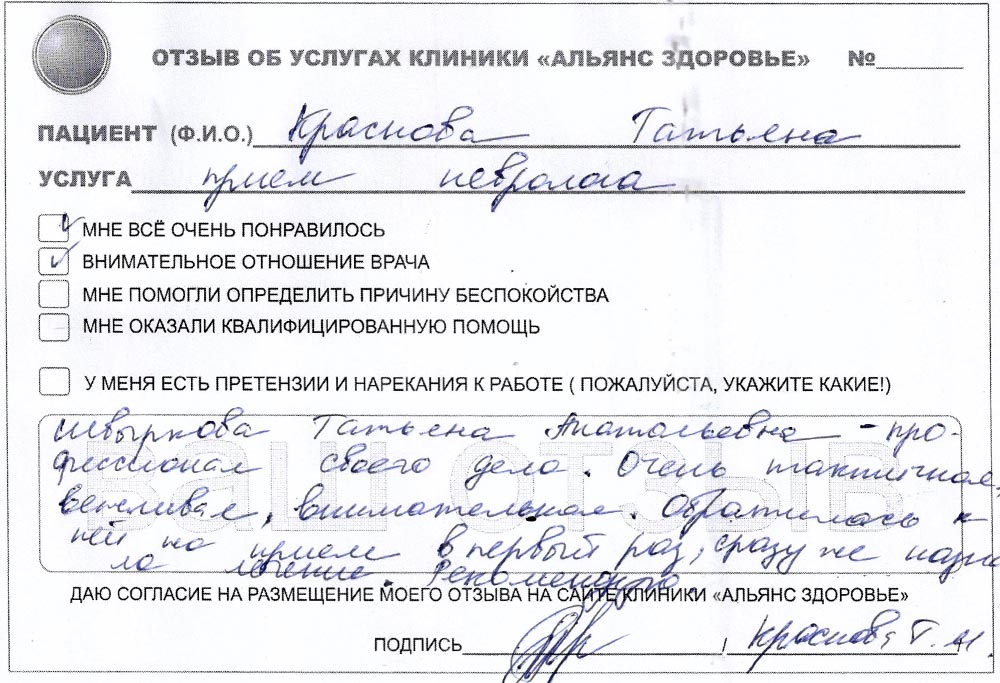 ОТЗЫВ ОБ УСЛУГАХ КЛИНИКИ «АЛЬЯНС ЗДОРОВЬЕ» №
ПАЦИЕНТ (Ф.И.О.) Краснова Татьяна
УСЛУГА прием невролога
МНЕ ВСЁ ОЧЕНЬ ПОНРАВИЛОСЬ
ВНИМАТЕЛЬНОЕ ОТНОШЕНИЕ ВРАЧА
МНЕ ПОМОГЛИ ОПРЕДЕЛИТЬ ПРИЧИНУ БЕСПОКОЙСТВА
МНЕ ОКАЗАЛИ КВАЛИФИЦИРОВАННУЮ ПОМОЩЬ
У МЕНЯ ЕСТЬ ПРЕТЕНЗИИ И НАРЕКАНИЯ К РАБОТЕ ( ПОЖАЛУЙСТА, УКАЖИТЕ КАКИЕ!)
ВАШ ОТЗЫВ
Швыркова Татьяна Анатольевна - про-
фессионал своего дела. Очень тактичная,
вежливая, внимательная. Обратилась к
ней на прием в первый раз, сразу же назна
ла лечение. Рекомендую.
ДАЮ СОГЛАСИЕ НА РАЗМЕЩЕНИЕ МОЕГО ОТЗЫВА НА САЙТЕ КЛИНИКИ «АЛЬЯНС ЗДОРОВЬЕ»
ПОДПИСЬ / Краснова Т. Н.